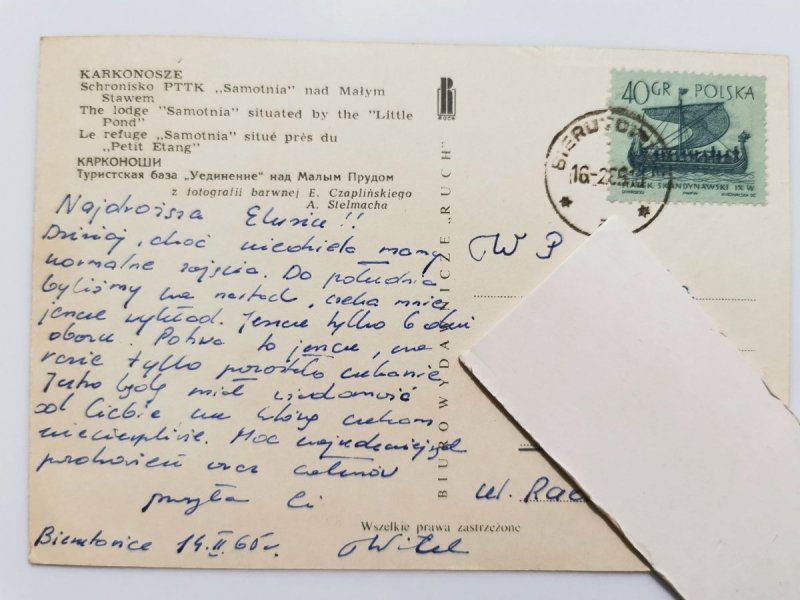 KARKONOSZE
Schronisko PTTK „Samotnia" nad Małym
Stawem
The lodge "Samotnia" situated by the "Little
Pond"
Le refuge „Samotnia" situé près du
„Petit Etang"
КАРКОНОШИ
Туристская база „Уединение" над Малым Прудом
z fotografii barwnej E. Czaplińskiego
A. Stelmacha
RUCH
BIURO WYDAWNICZE „RUCH"
40 GR POLSKA
IX W.
Najdroższa Elusiu !!
Dzisiaj, choć niedziela mamy
normalne zajęcia. Do południa
byliśmy na nartach, czeka mnie
jeszcze wykład. Jeszcze tylko 6 dni
obozu. Potrwa to jeszcze, na
razie tylko pozostało czekanie
Jutro będę miał wiadomość
od Ciebie na którą czekam
niecierpliwie. Moc najserdeczniejszych
pozdrowień oraz całusów
przesyła Ci
Witek
Bierutowice 14.II.65r.
W P
ul. Rac
Wszelkie prawa zastrzeżone